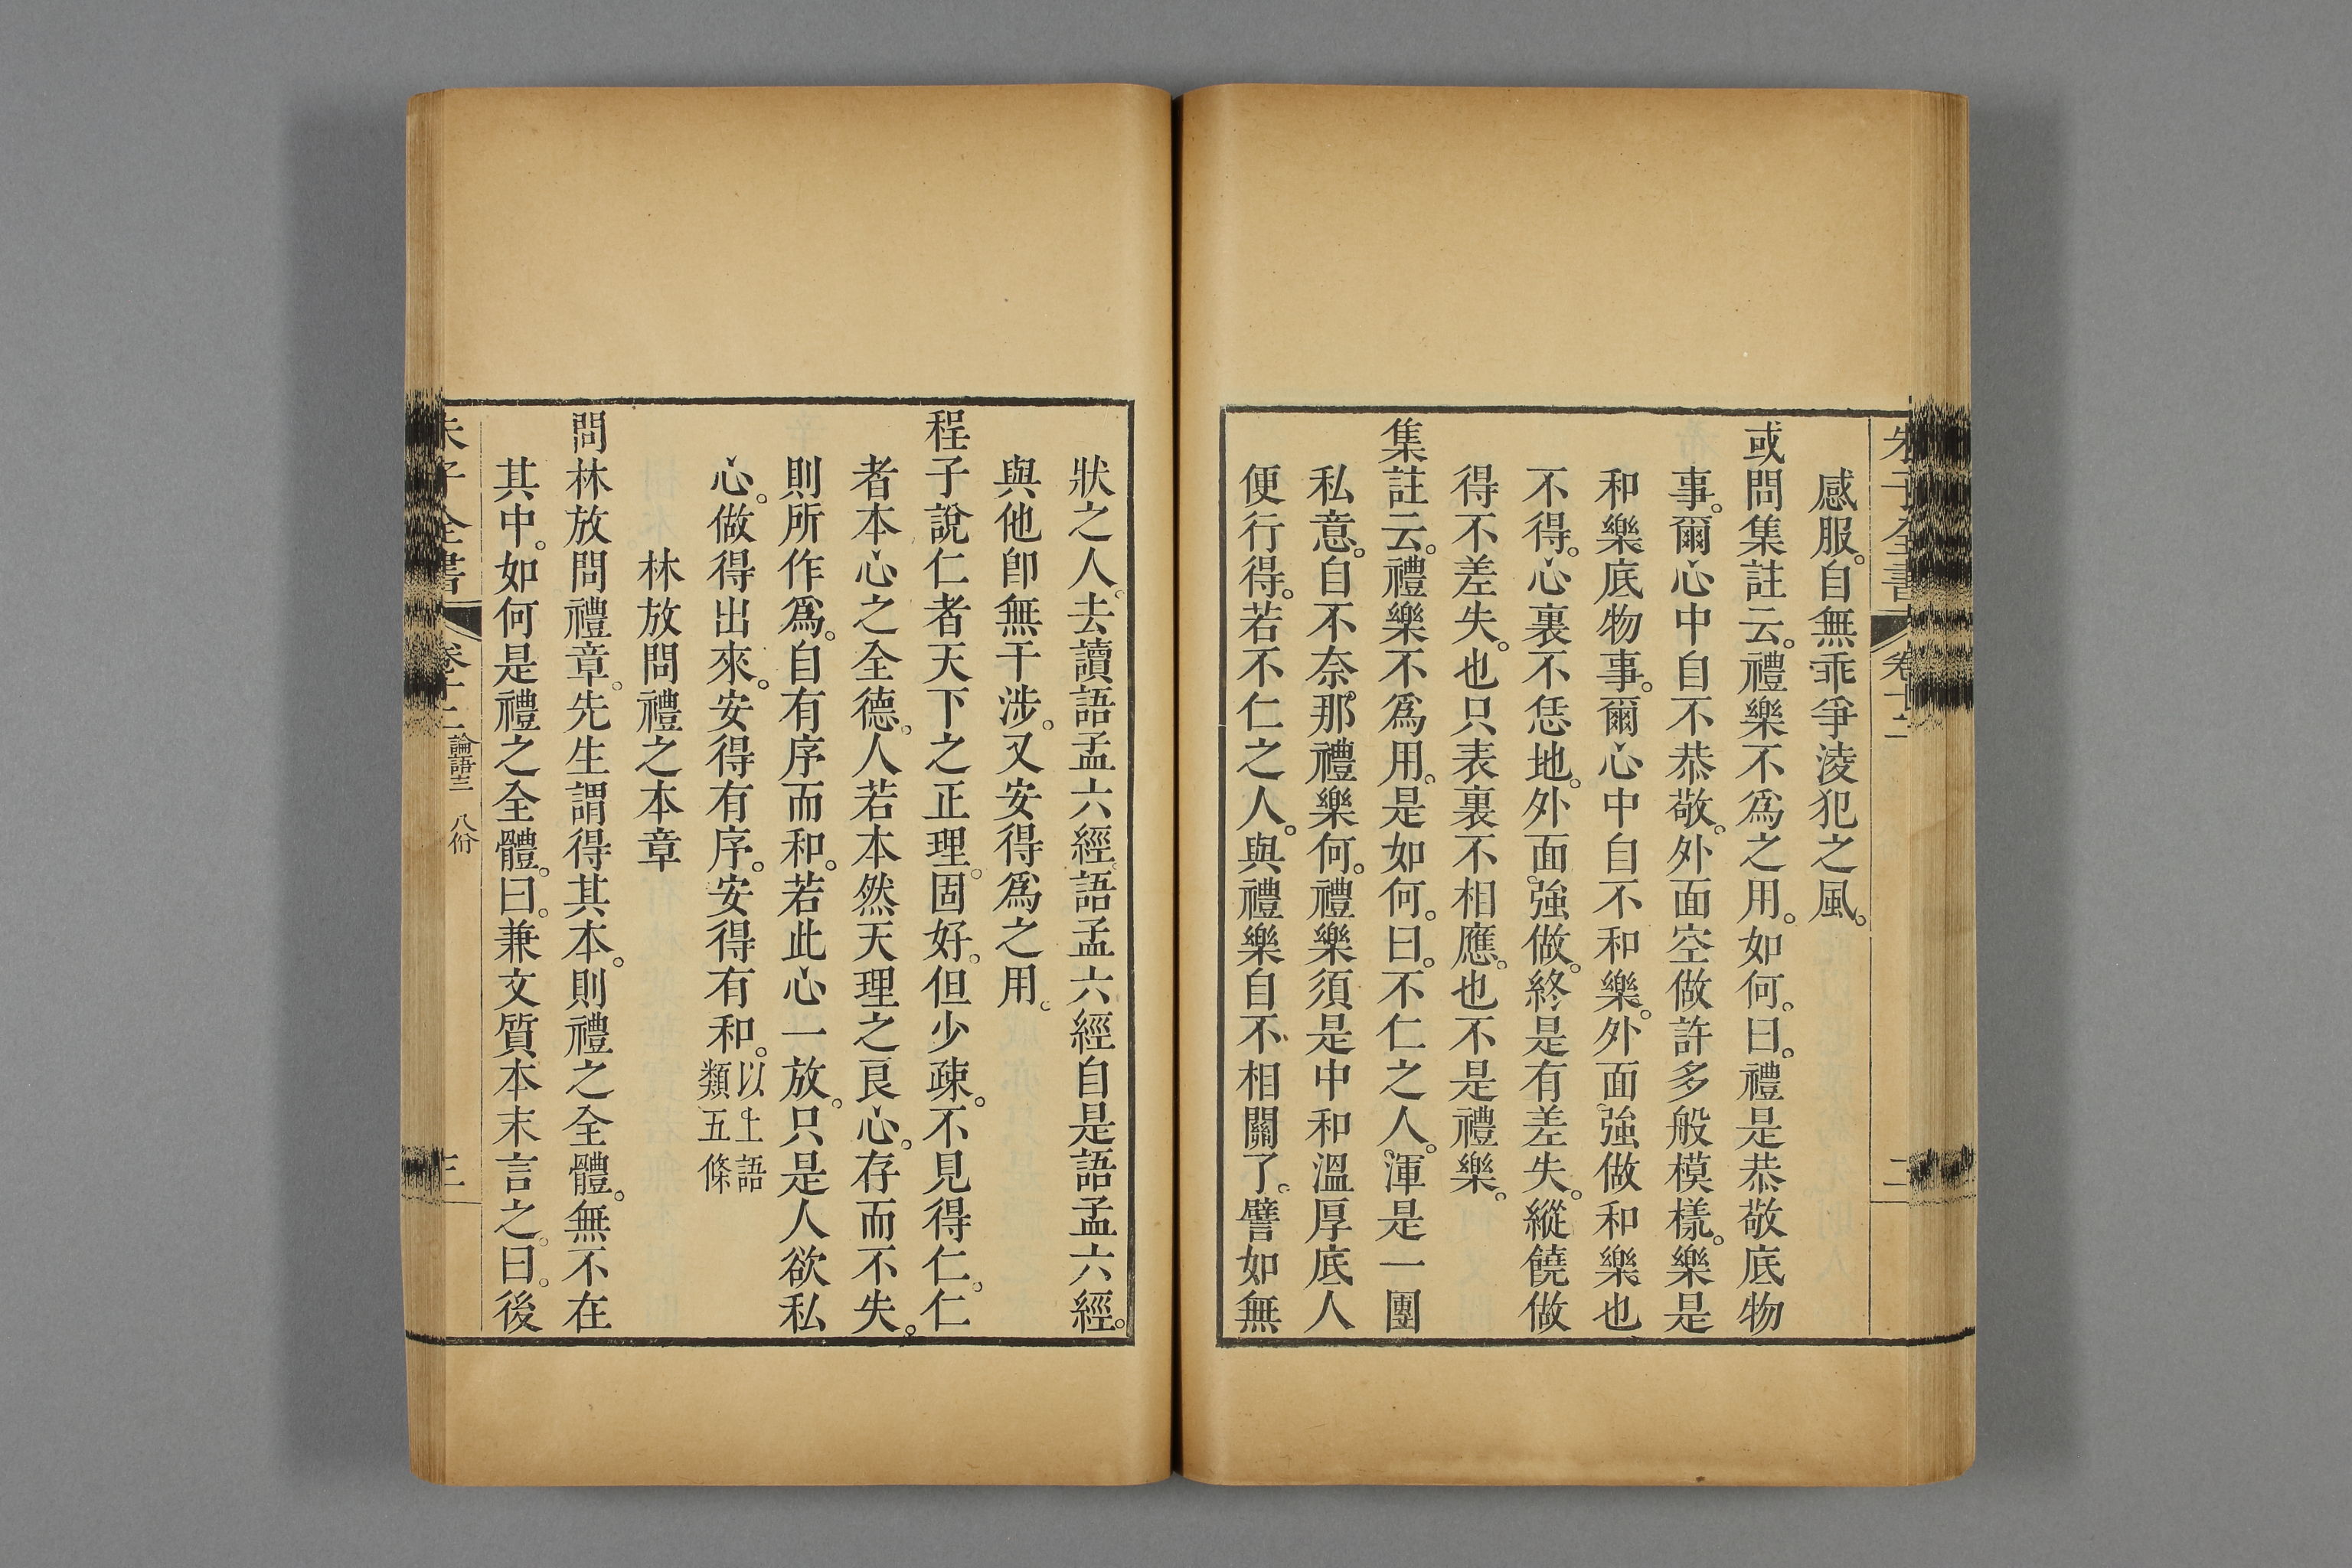 朱子全書 卷十二 二
感服。自無乖爭淩犯之風。
或問集註云。禮樂不爲之用。如何。曰。禮是恭敬底物
事。爾心中自不恭敬。外面空做許多般模樣。樂是
和樂底物事。爾心中自不和樂。外面強做和樂也
不得。心裏不恁地。外面強做。終是有差失。縱饒做
得不差失。也只表裏不相應。也不是禮樂。
集註云。禮樂不爲用。是如何。曰。不仁之人。渾是一團
私意。自不奈那禮樂何。禮樂須是中和溫厚底人
便行得。若不仁之人。與禮樂自不相關了。譬如無
狀之人。去讀語孟六經。語孟六經自是語孟六經。
與他卽無干涉。又安得爲之用。
程子說仁者天下之正理。固好。但少疎。不見得仁。仁
者本心之全德。人若本然天理之良心。存而不失。
則所作爲。自有序而和。若此心一放。只是人欲私
心。做得出來。安得有序。安得有和。以上語類五條
林放問禮之本章
問林放問禮章。先生謂得其本。則禮之全體。無不在
其中。如何是禮之全體。曰。兼文質本末言之。曰。後
朱子全書 卷十二 論語三 八佾 三